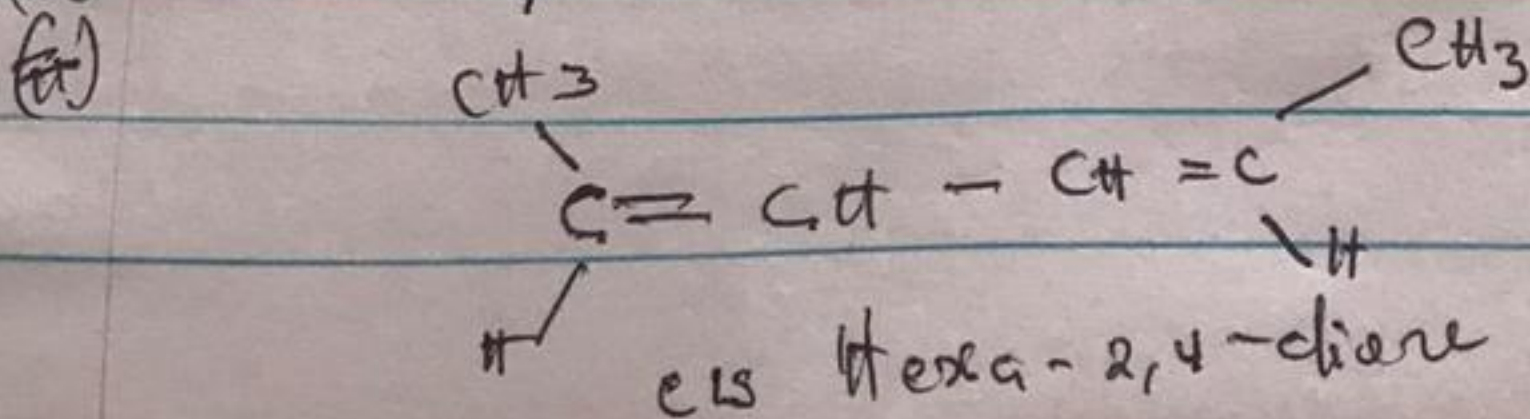 CH3 CH3
C = CH - CH = C
H H
cis Hexa - 2,4 - diene